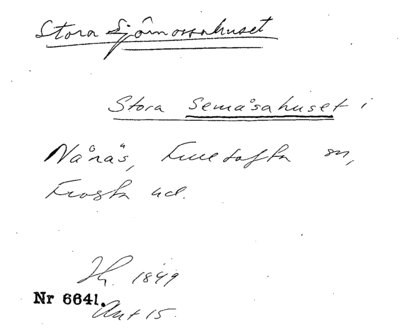 Stora Sjömossahuset
Stora Semåsahuset i
Nåräs, Fulltofta sn,
Frosta hd.
Th. 1849
Nr 6641.
Ant 15.